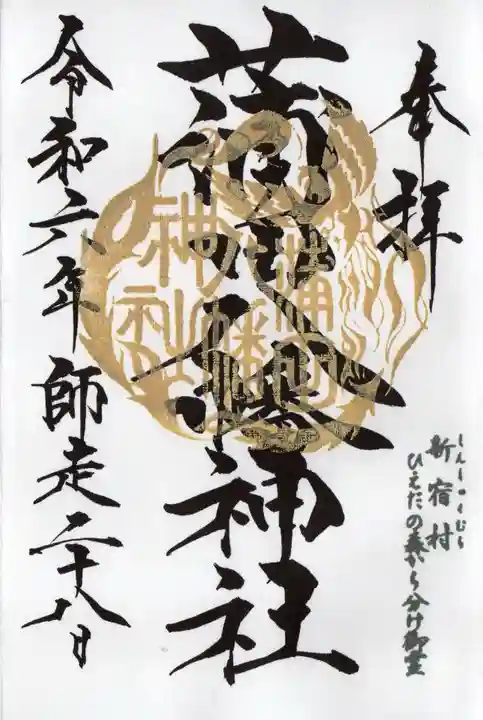 奉拝
しんしゅくむら
新宿村
ひえだの森から分け御霊
蒲田八幡神社
令和六年師走二十八日